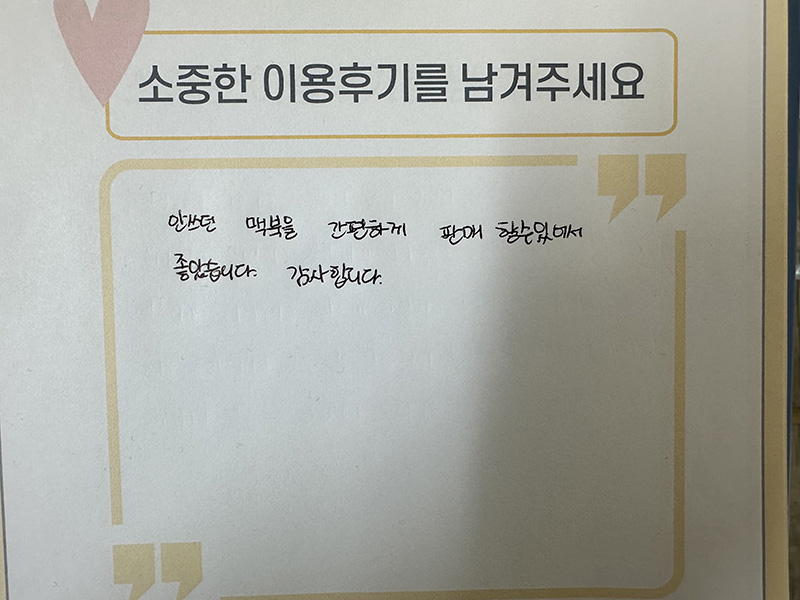 소중한 이용후기를 남겨주세요
안쓰던 맥북을 간편하게 판매 할수있어서
좋았습니다. 감사합니다.